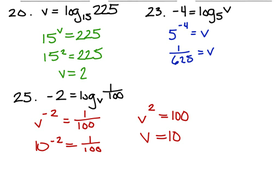 20. v = log₁₅ 225
15ᵛ = 225
15² = 225
v = 2
23. -4 = log₅ v
5⁻⁴ = v
1/625 = v
25. -2 = logᵥ 1/100
v⁻² = 1/100
10⁻² = 1/100
v² = 100
v = 10